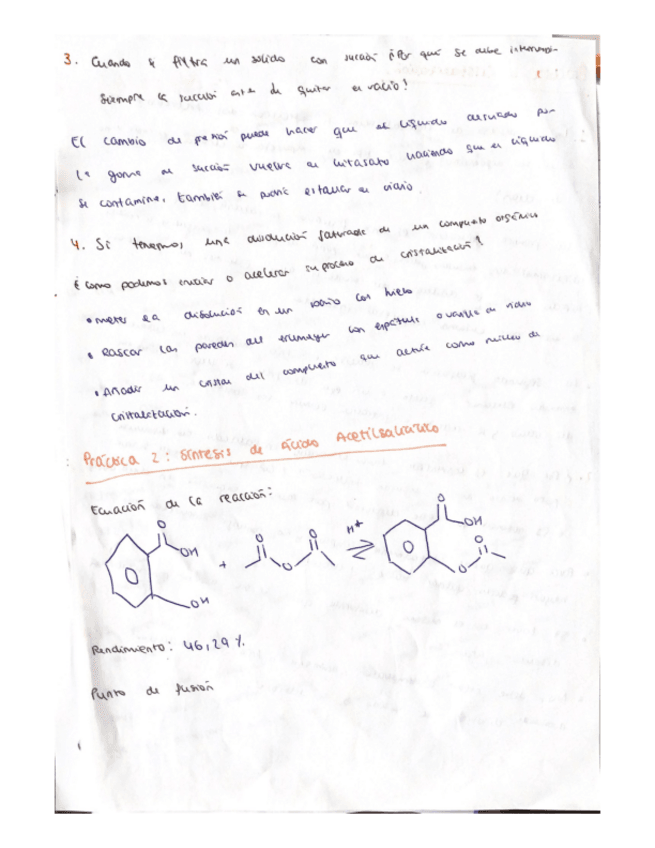 3. Cuando se filtra un sólido con succión ¿Por qué se debe interrumpir
siempre la succión antes de quitar el vacío?
El cambio de presión puede hacer que el líquido por
la goma de succión vuelva al kitasato haciendo que el líquido
se contamine, también se podría estallar el vidrio.
4. Si tenemos una disolución saturada de un compuesto orgánico
¿como podemos iniciar o acelerar su proceso de cristalización?
• meter la disolución en un baño con hielo
• Rascar las paredes del erlenmeyer con espátula o varilla de vidrio
• Añadir un cristal del compuesto que actúe como núcleo de
cristalización.
Práctica 2: Síntesis de ácido Acetilsalicílico
Ecuación de la reacción:
O
OH
OH
+
O
O
O
H+
O
OH
O
O
Rendimiento: 46,29 %.
Punto de fusión